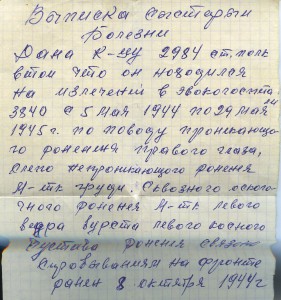 Выписка с истории
Болезни
Дана К-цу 2984 ст. полк
в том что он находился
на излечении в эвокогоспитали
3840 с 5 мая 1944 по 29 мая
1945 г. по поводу проникающо-
го ронения правого глаза,
слего непроникающого ронения
М-тк груди. Сквозного осколо-
чного ронения М-тк левого
ведра левого косного
ронения связано
с пробыванием на фронте
ранен 8 октября 1944 г